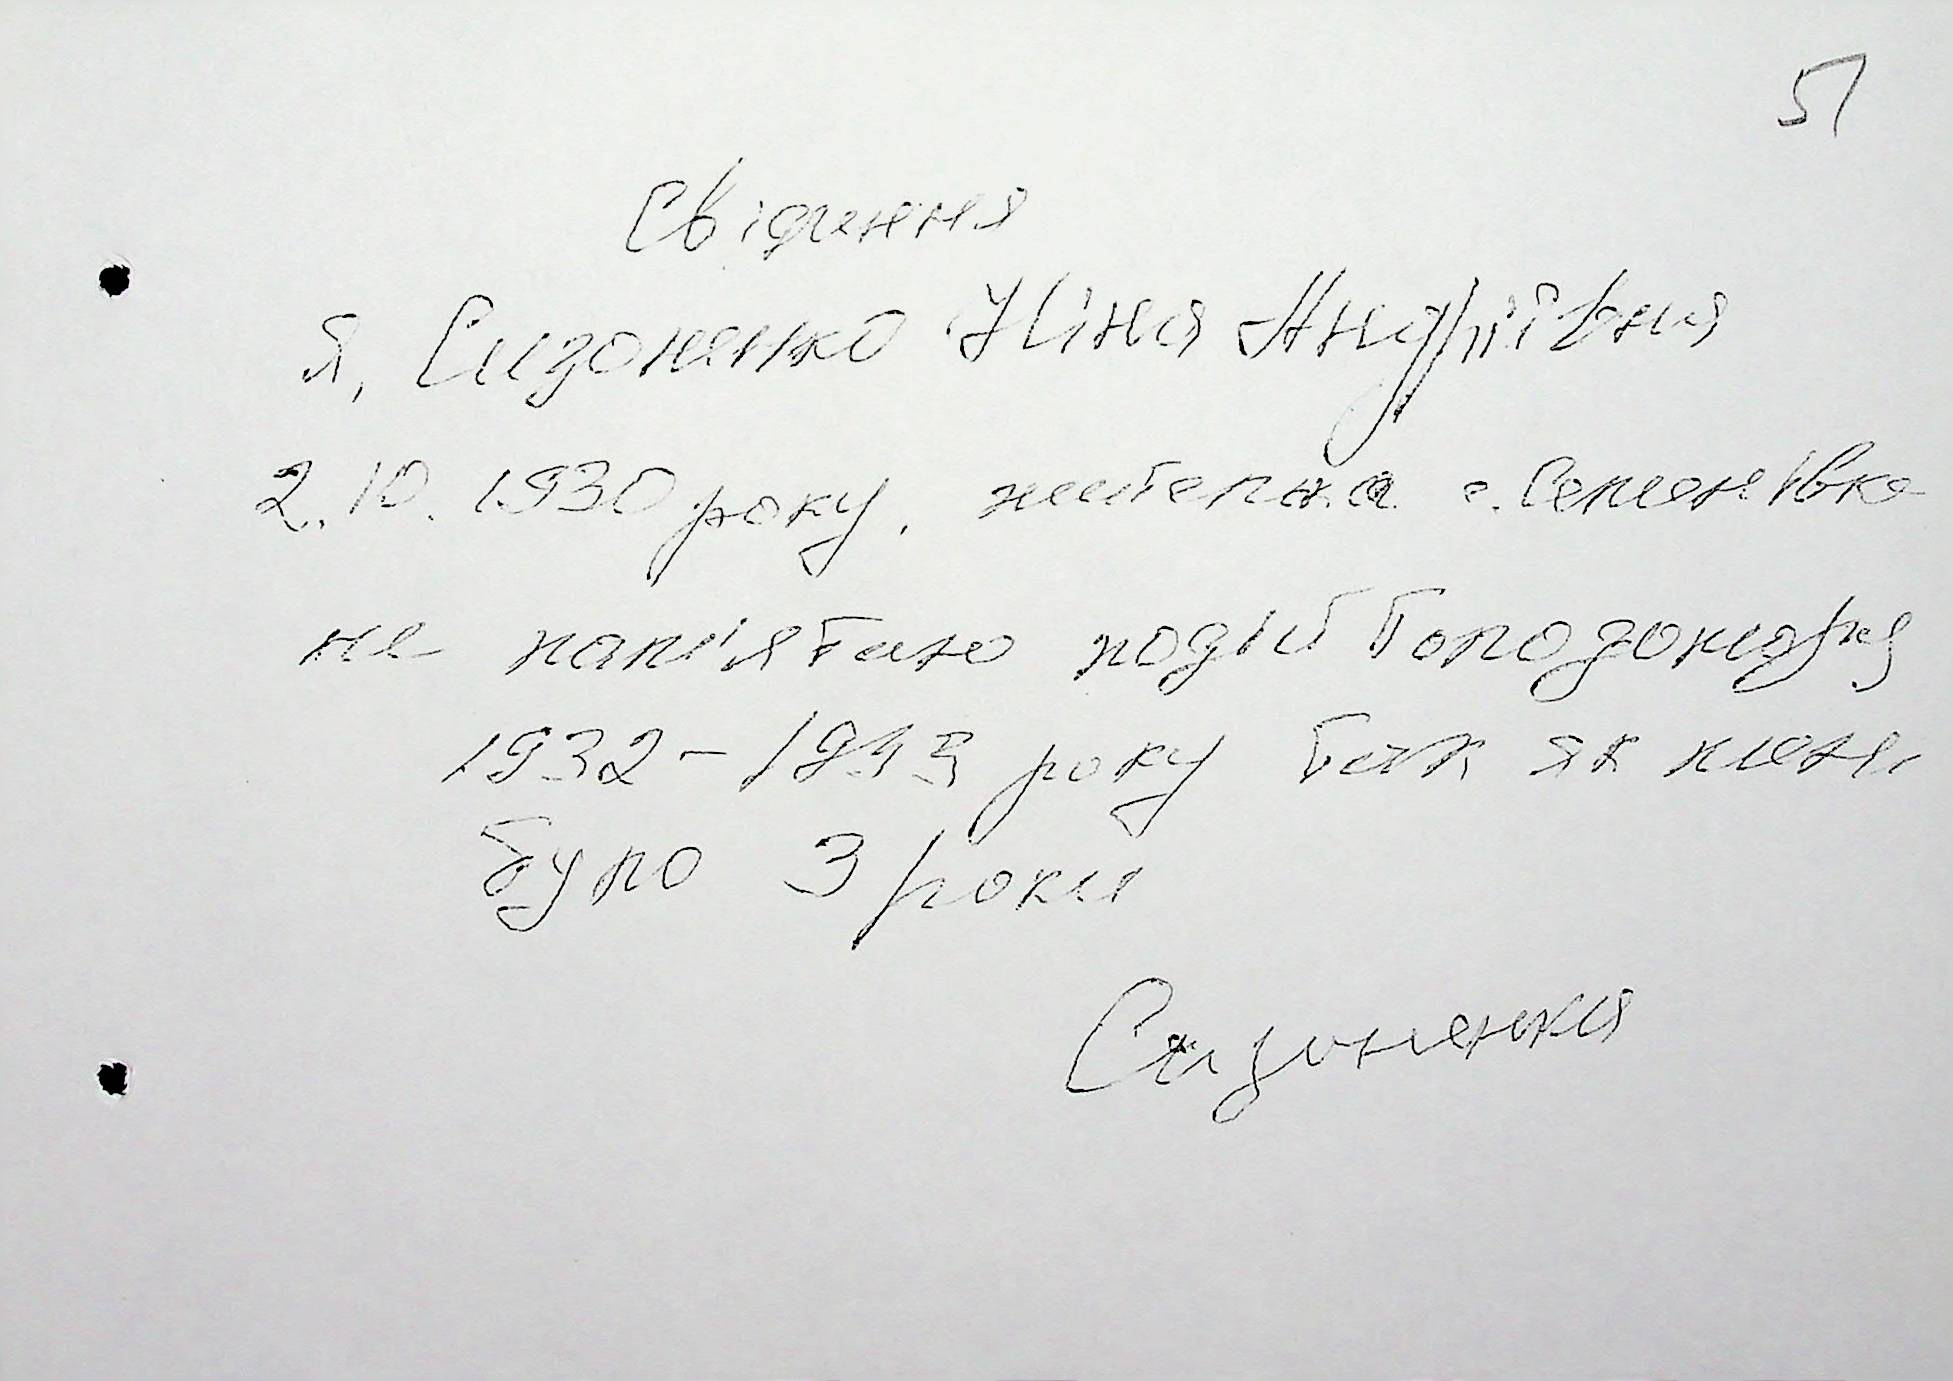 51
Свідчення
Я, Сизоненко Ніна Андріївна
2.10.1930 року, жителька с. Семенівка
не пам'ятаю подій Голодомору
1932-1933 року так як мені
було 3 роки
Сизоненко